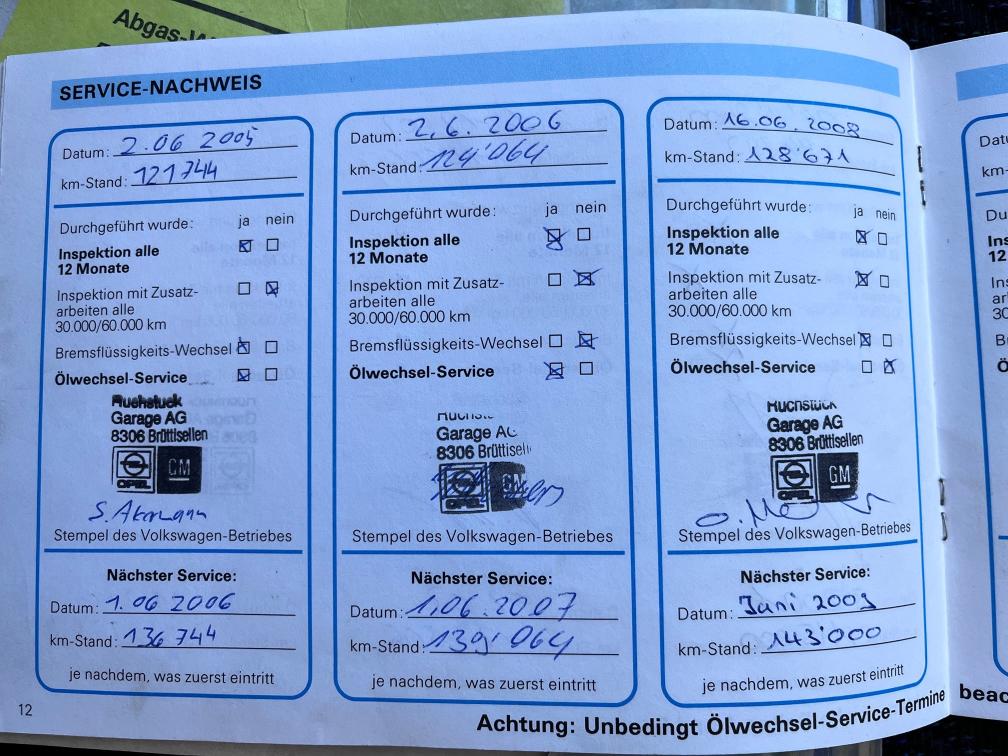 Abgas-W
SERVICE-NACHWEIS
Datum: 2.06 2005
km-Stand: 121744
Durchgeführt wurde: ja nein
Inspektion alle
12 Monate
Inspektion mit Zusatz-
arbeiten alle
30.000/60.000 km
Bremsflüssigkeits-Wechsel
Ölwechsel-Service
Ruchstuck
Garage AG
8306 Brüttisellen
OPEL GM
Stempel des Volkswagen-Betriebes
Nächster Service:
Datum: 1.06 2006
km-Stand: 136 744
je nachdem, was zuerst eintritt
Datum: 2.6.2006
km-Stand: 124'064
Durchgeführt wurde: ja nein
Inspektion alle
12 Monate
Inspektion mit Zusatz-
arbeiten alle
30.000/60.000 km
Bremsflüssigkeits-Wechsel
Ölwechsel-Service
Garage AG
8306 Brüttisell
OPEL GM
Stempel des Volkswagen-Betriebes
Nächster Service:
Datum: 1.06.2007
km-Stand: 139'064
je nachdem, was zuerst eintritt
Datum: 16.06.2008
km-Stand: 128'671
Durchgeführt wurde: ja nein
Inspektion alle
12 Monate
Inspektion mit Zusatz-
arbeiten alle
30.000/60.000 km
Bremsflüssigkeits-Wechsel
Ölwechsel-Service
Ruchstuck
Garage AG
8306 Brüttisellen
OPEL GM
Stempel des Volkswagen-Betriebes
Nächster Service:
Datum: Juni 2009
km-Stand: 143'000
je nachdem, was zuerst eintritt
12
Achtung: Unbedingt Ölwechsel-Service-Termine beac